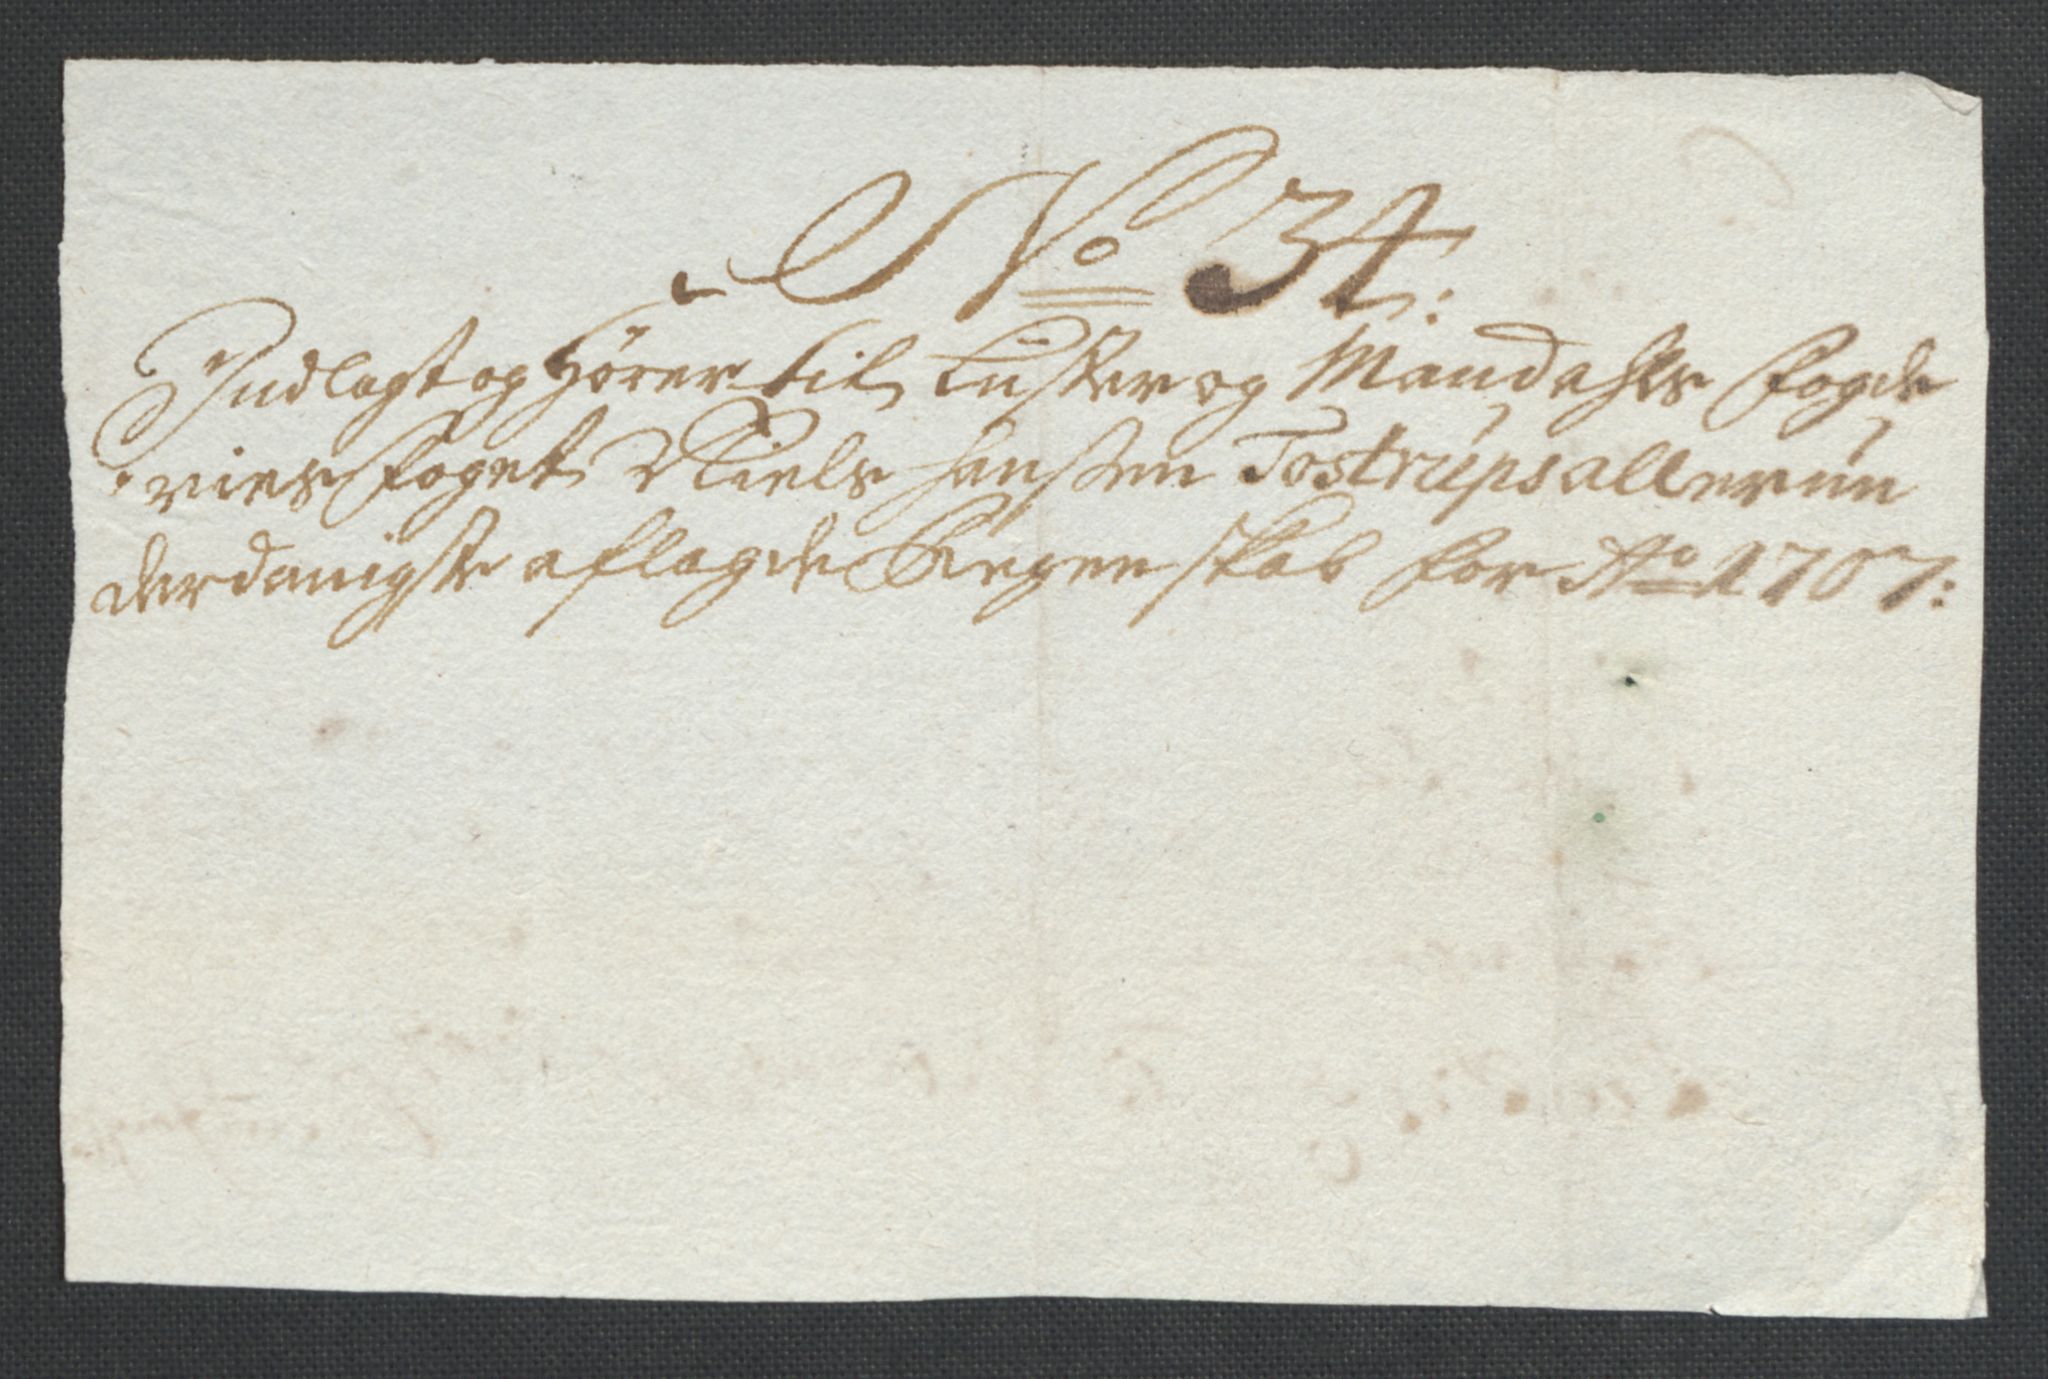 No 34:
Indlagt og Hörer til Lister og Mandahls fogde
ries foget Niels Hanssen Tostrups allerun
derdanigste aflagde Regenskab for Ao 1707: